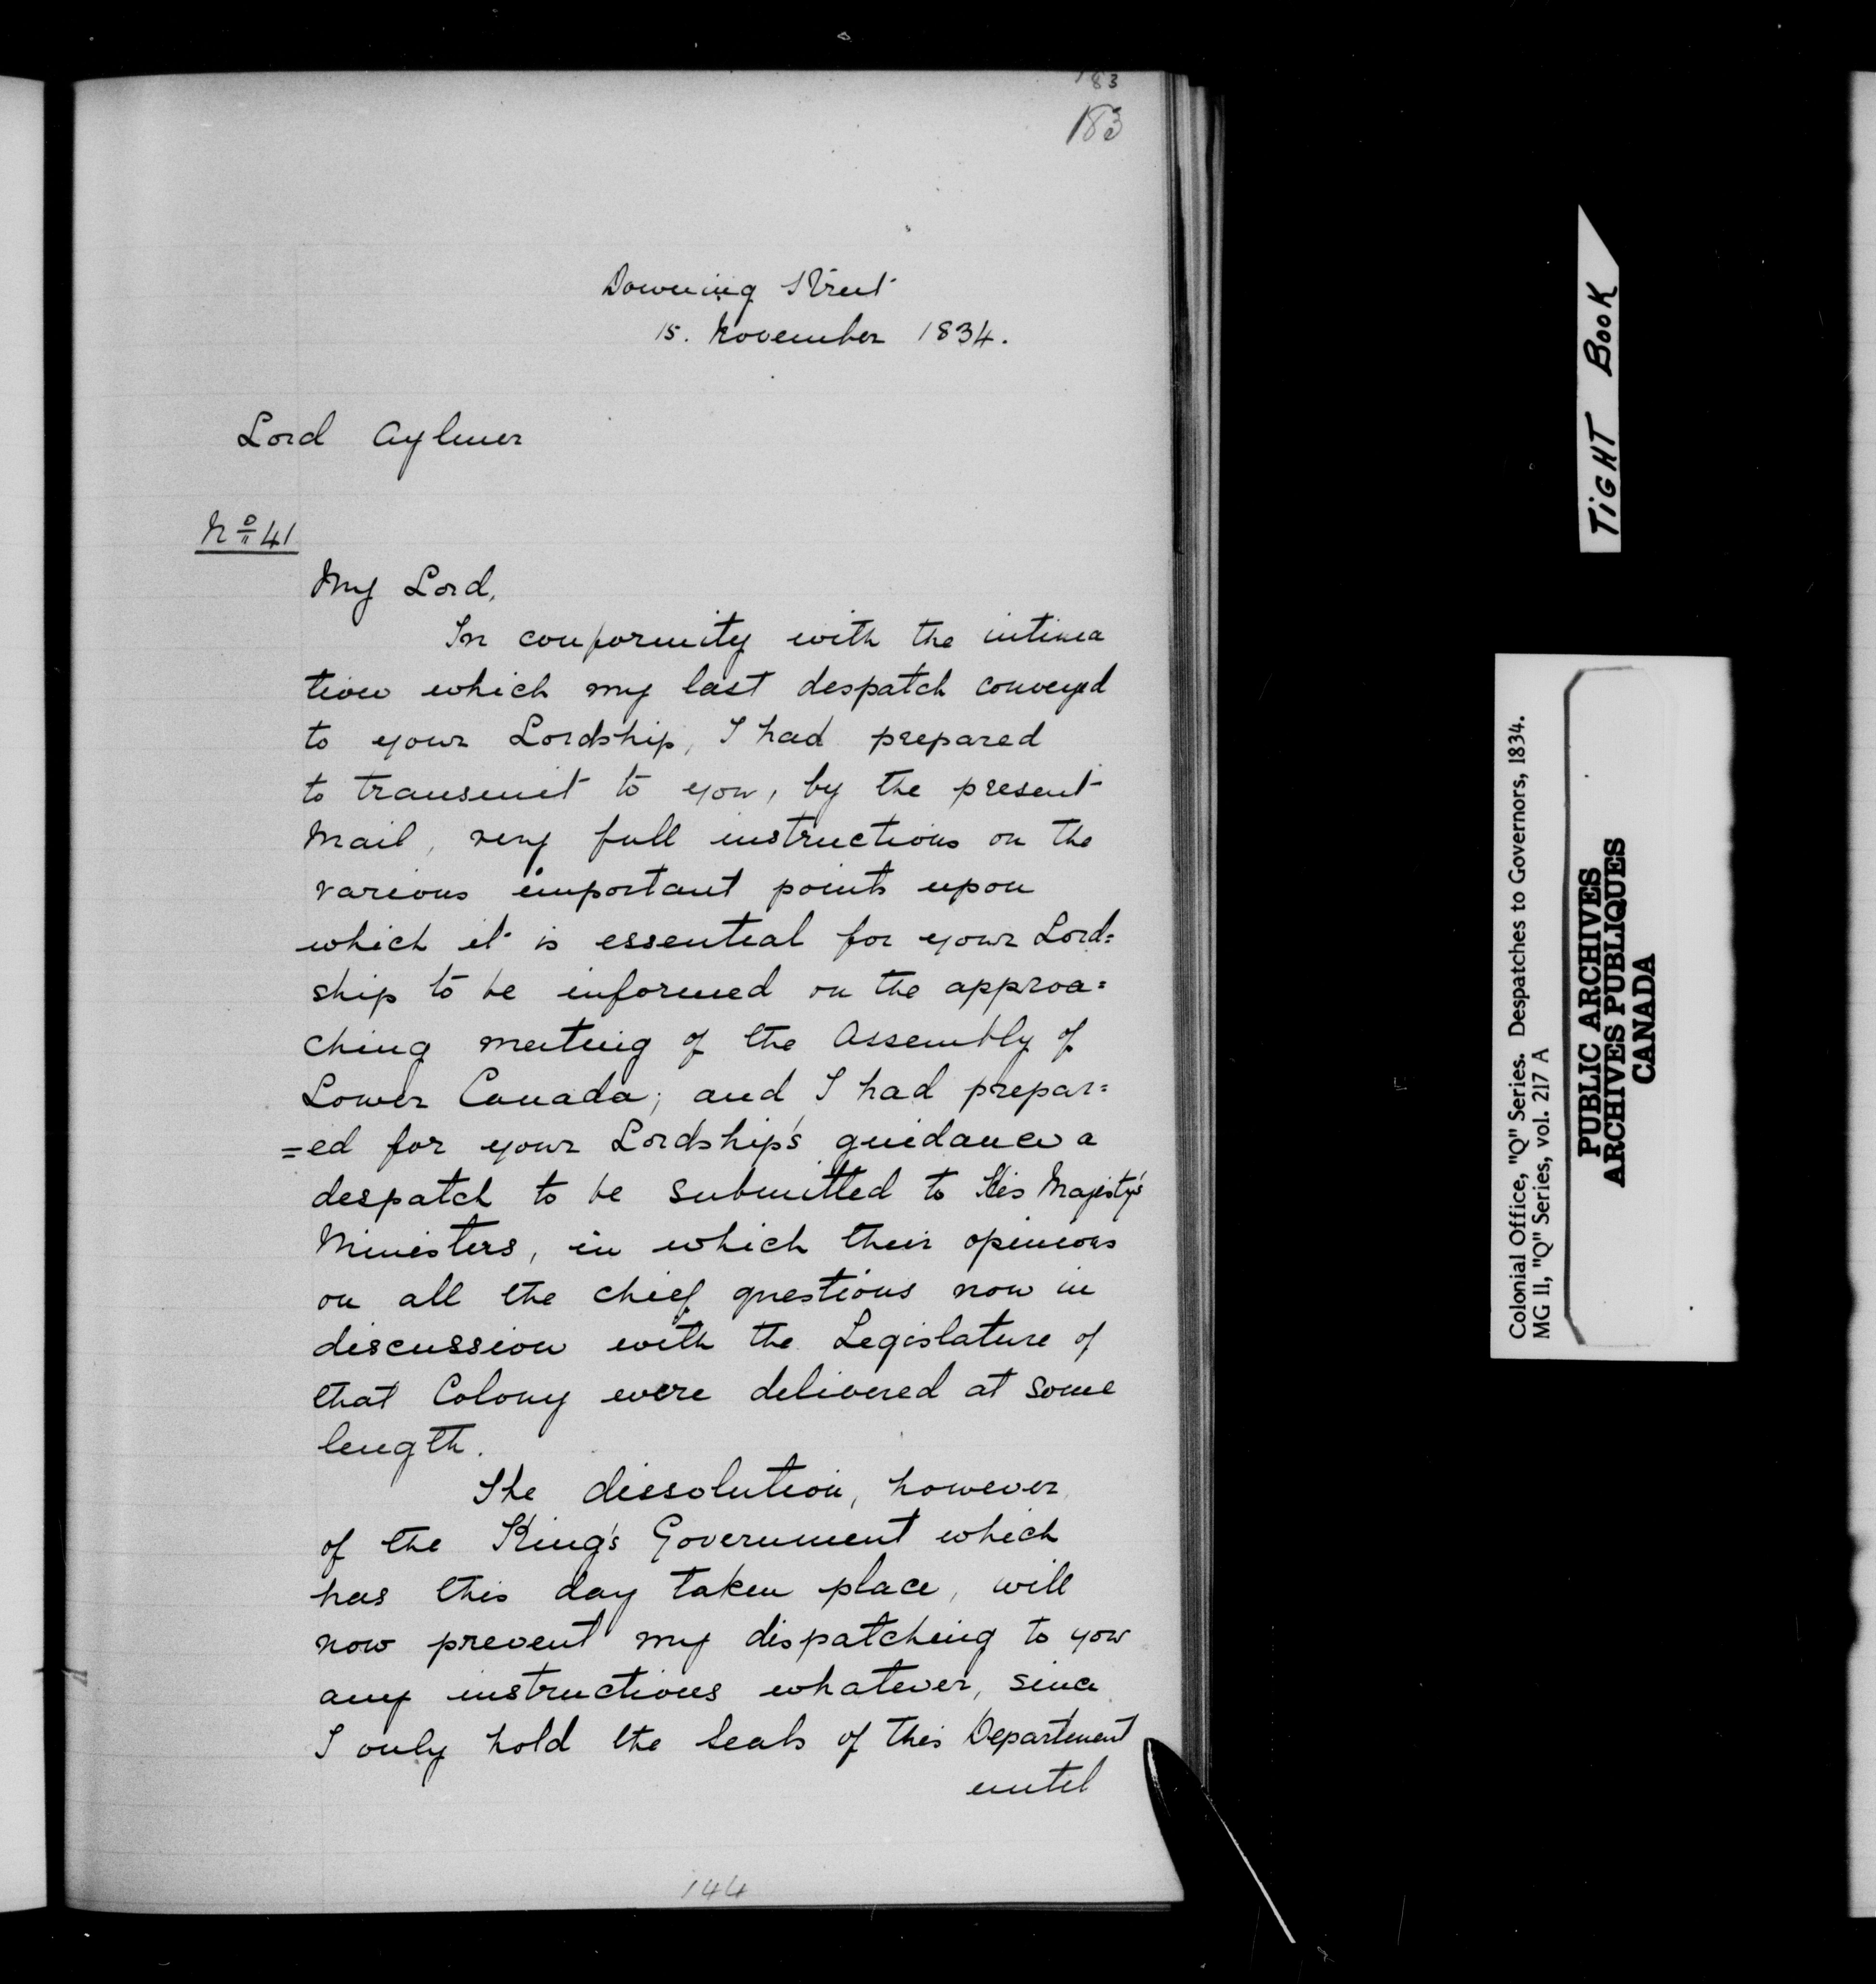 183
183
Downing Street
15. November 1834.
Lord Aylmer
No 41
My Lord,
In conformity with the intima
tion which my last despatch conveyed
to your Lordship, I had prepared
to transmit to you, by the present
Mail, very full instructions on the
various important points upon
which it is essential for your Lord=
ship to be informed on the approa=
ching meeting of the Assembly of
Lower Canada; and I had prepar=
=ed for your Lordship's guidance a
despatch to be submitted to His Majesty's
Ministers, in which their opinions
on all the chief questions now in
discussion with the Legislature of
that Colony were delivered at some
length.
The dissolution, however
of the King's Government which
has this day taken place, will
now prevent my dispatching to you
any instructions whatever, since
I only hold the Seals of this Department
until
144
TIGHT BOOK
Colonial Office, "Q" Series. Despatches to Governors, 1834.
MG 11, "Q" Series, vol. 217 A
PUBLIC ARCHIVES
ARCHIVES PUBLIQUES
CANADA